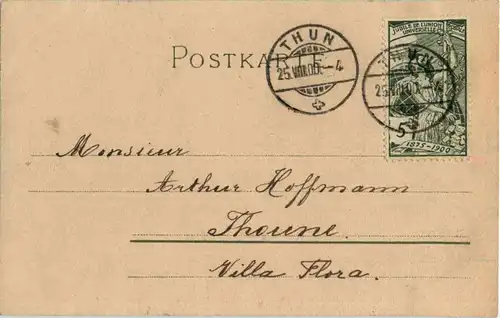 JUBILÉ DE L'UNION
UNIVERSELLE
POSTKARTE
THUN
25.VIII.00.-4
THUN
25.VIII.00.-4
5
1875-1900
Monsieur
Arthur Hoffmann
Thoune.
Villa Flora.